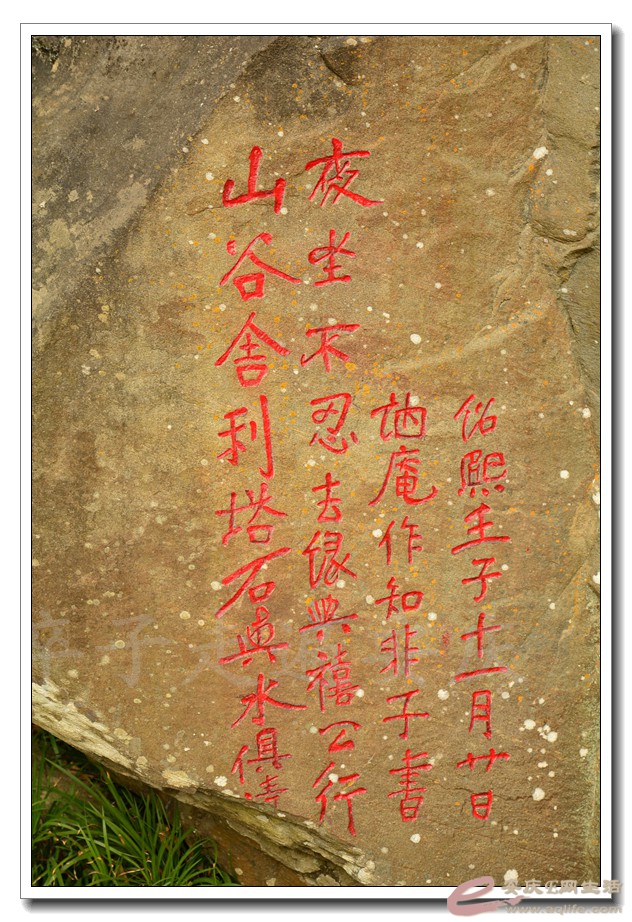 山谷舍利塔石與水俱清
夜坐不忍去緣與禧公行
訥庵作知非子書
紹熙壬子十一月廿日
安庆E网生活
www.aqlife.com